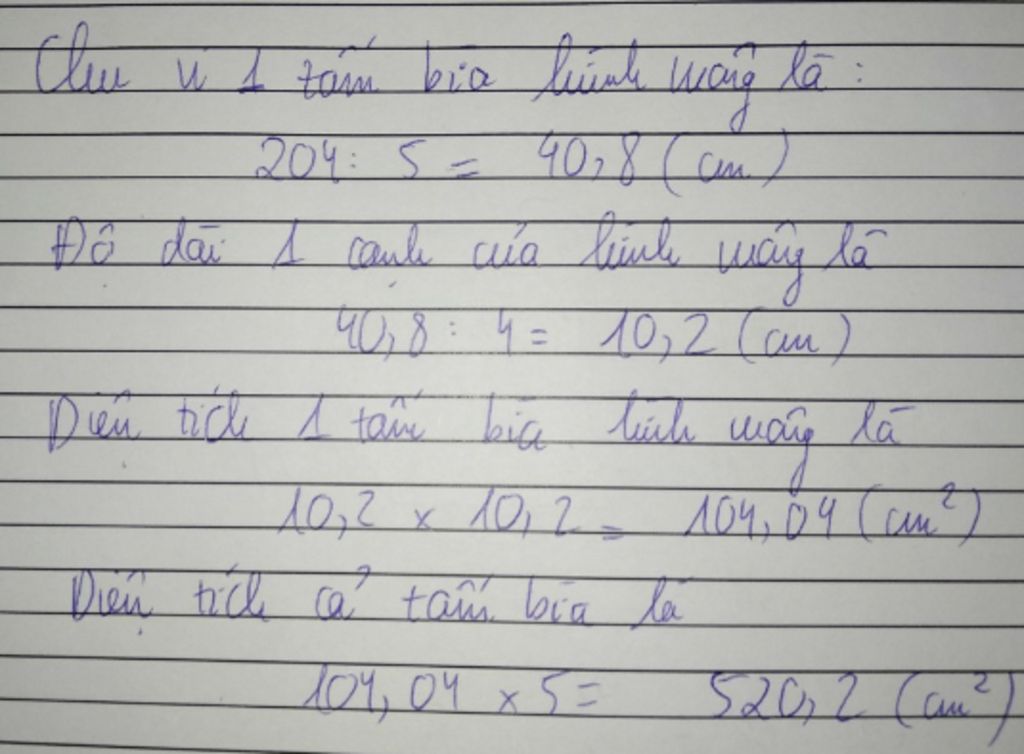 Chu vi 1 tấm bìa hình vuông là :
204 : 5 = 40,8 (cm)
Độ dài 1 cạnh của hình vuông là
40,8 : 4 = 10,2 (cm)
Diện tích 1 tấm bìa hình vuông là
10,2 x 10,2 = 104,04 (cm²)
Diện tích cả tấm bìa là
104,04 x 5 = 520,2 (cm²)